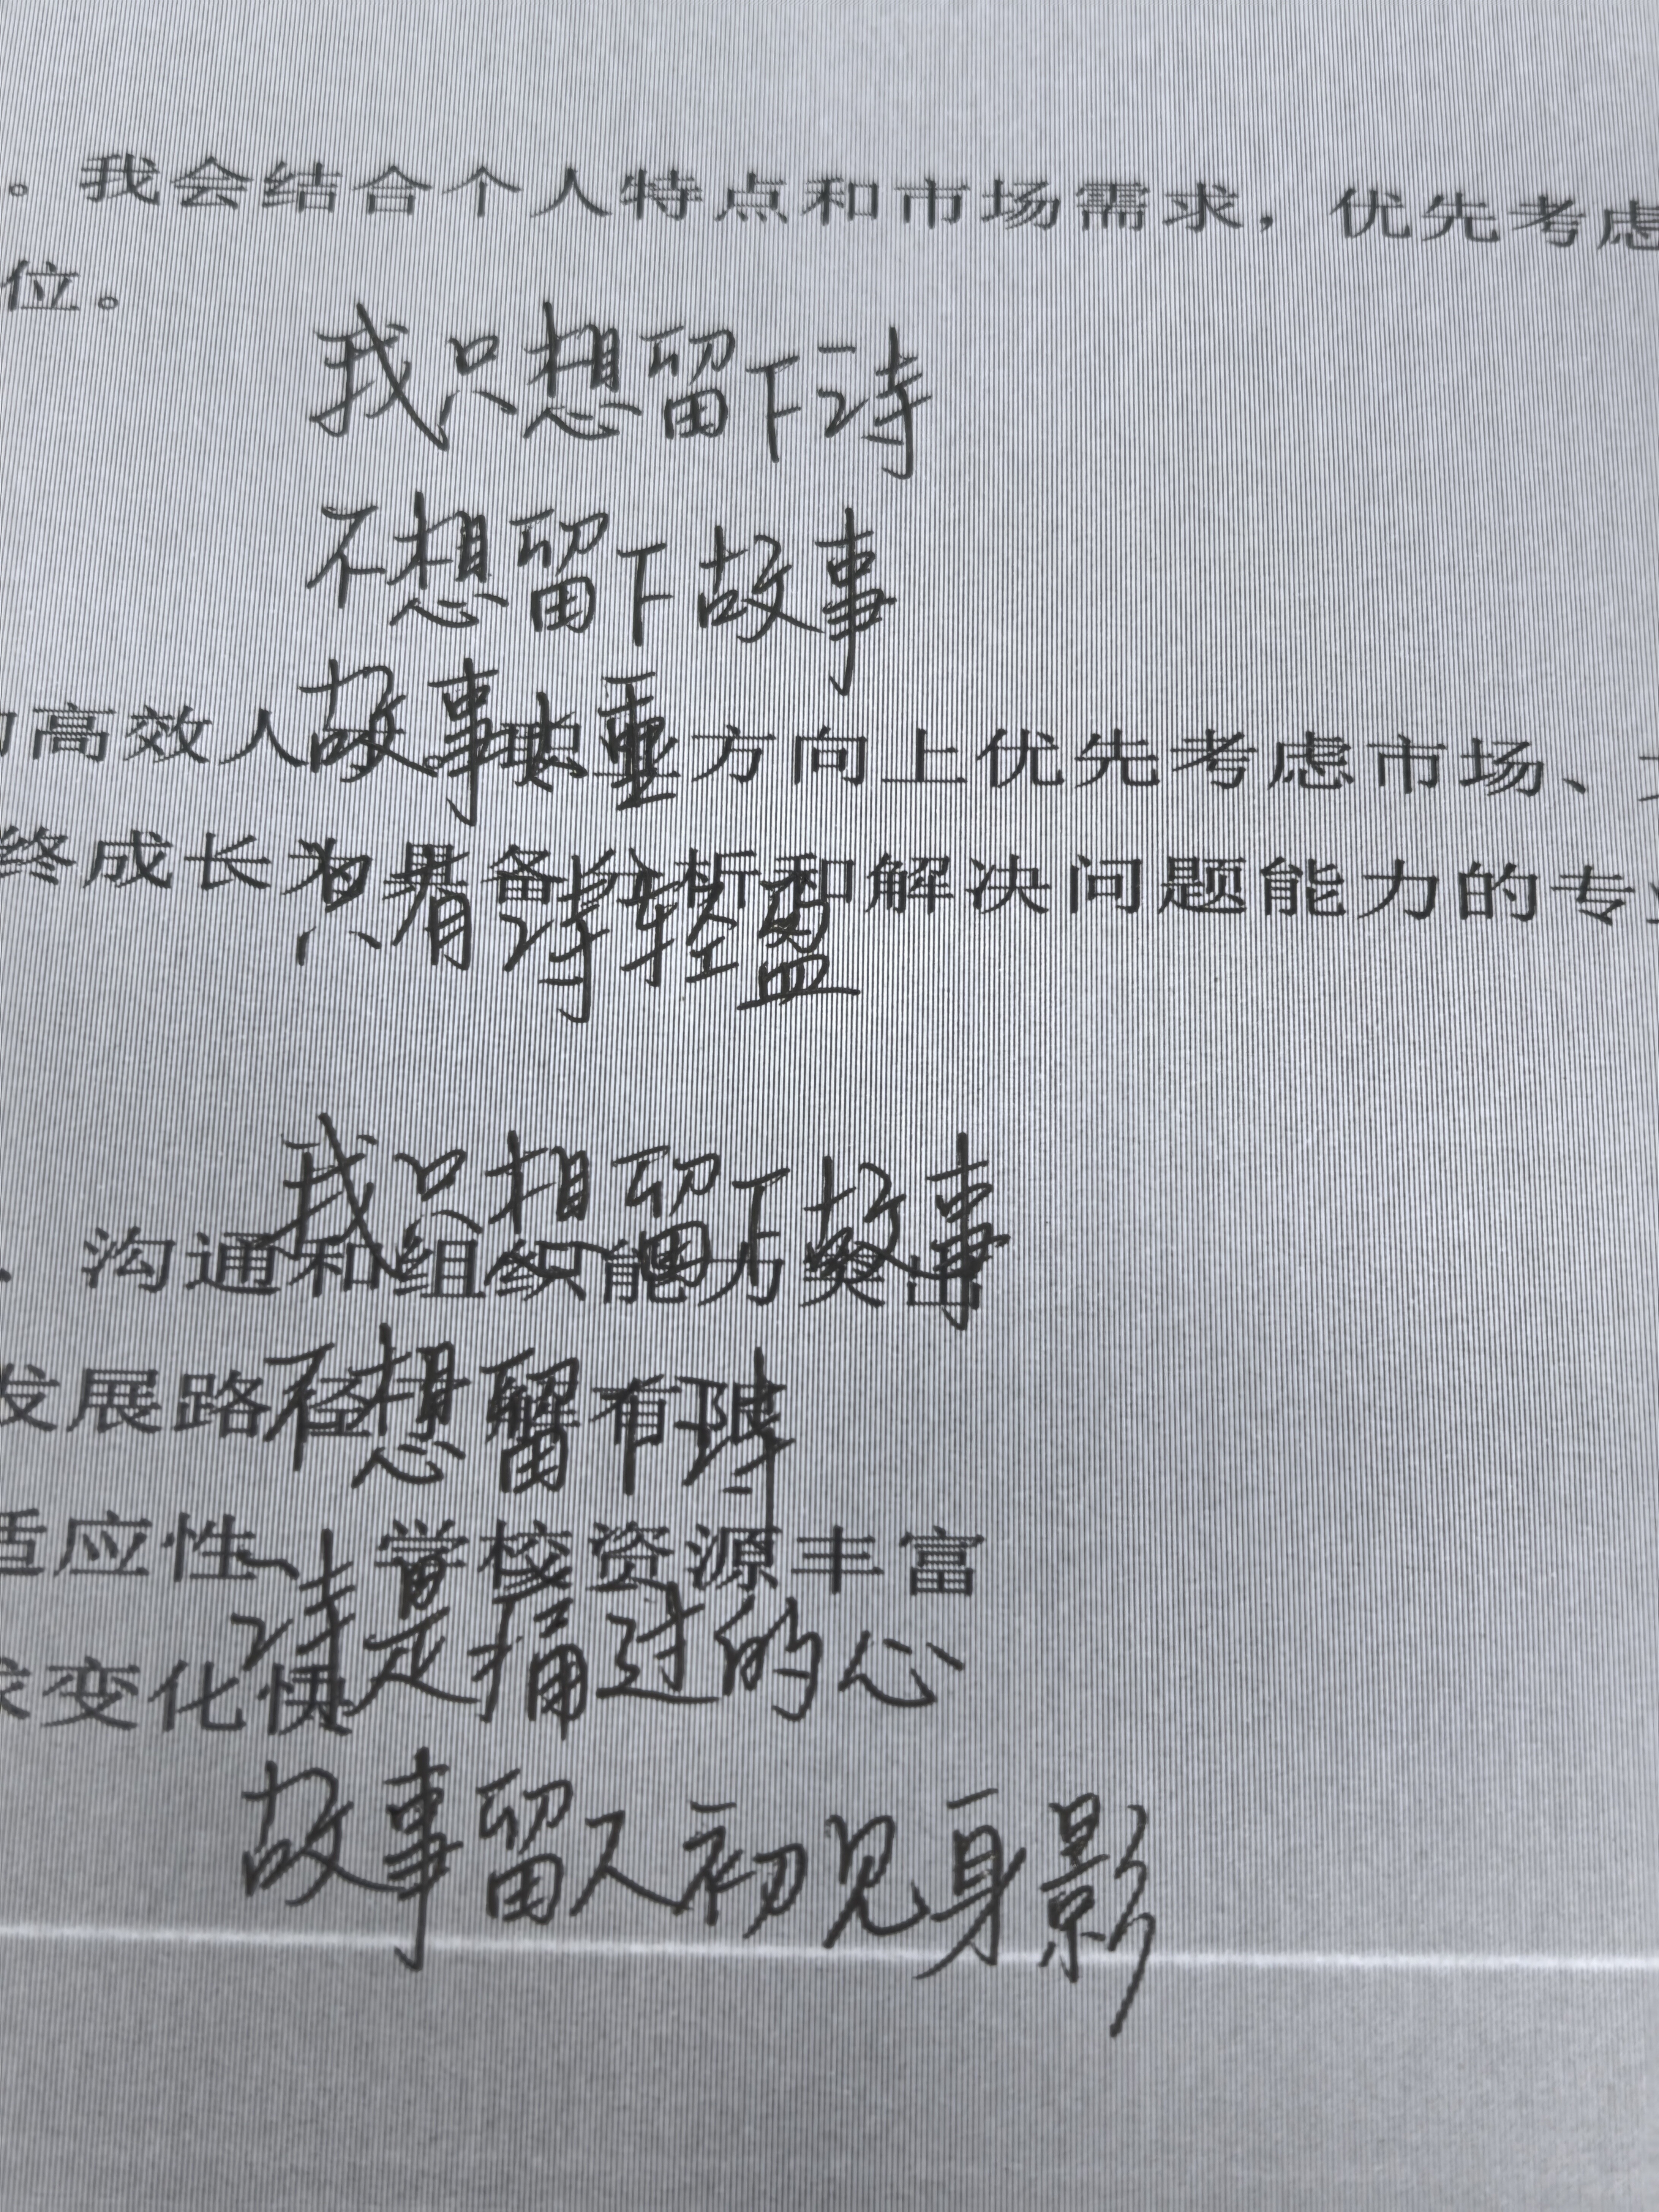 。我会结合个人特点和市场需求，优先考虑
位。
我只想留下诗
不想留下故事
故事太重
高效人 方向上优先考虑市场、
终成长为具备分析和解决问题能力的专
只有诗轻盈
我只想留下故事
、沟通和组织能力突出
发展路径
不想留下诗
适应性、学校资源丰富
诗是痛过的心
变化快
故事留人初见身影